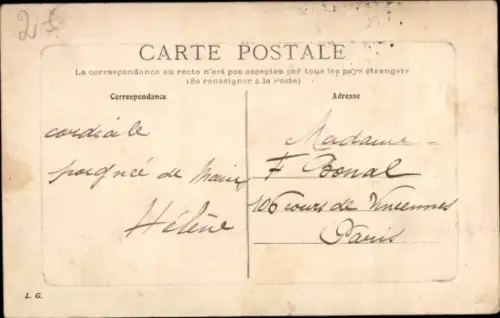 2€
CARTE POSTALE
La correspondance au recto n'est pas acceptée par tous les pays étrangers
(Se renseigner à la Poste)
Correspondance
Adresse
cordiale
poignée de Main
Hélène
Madame
F Bonal
106 cours de Vincennes
Paris
L. G.